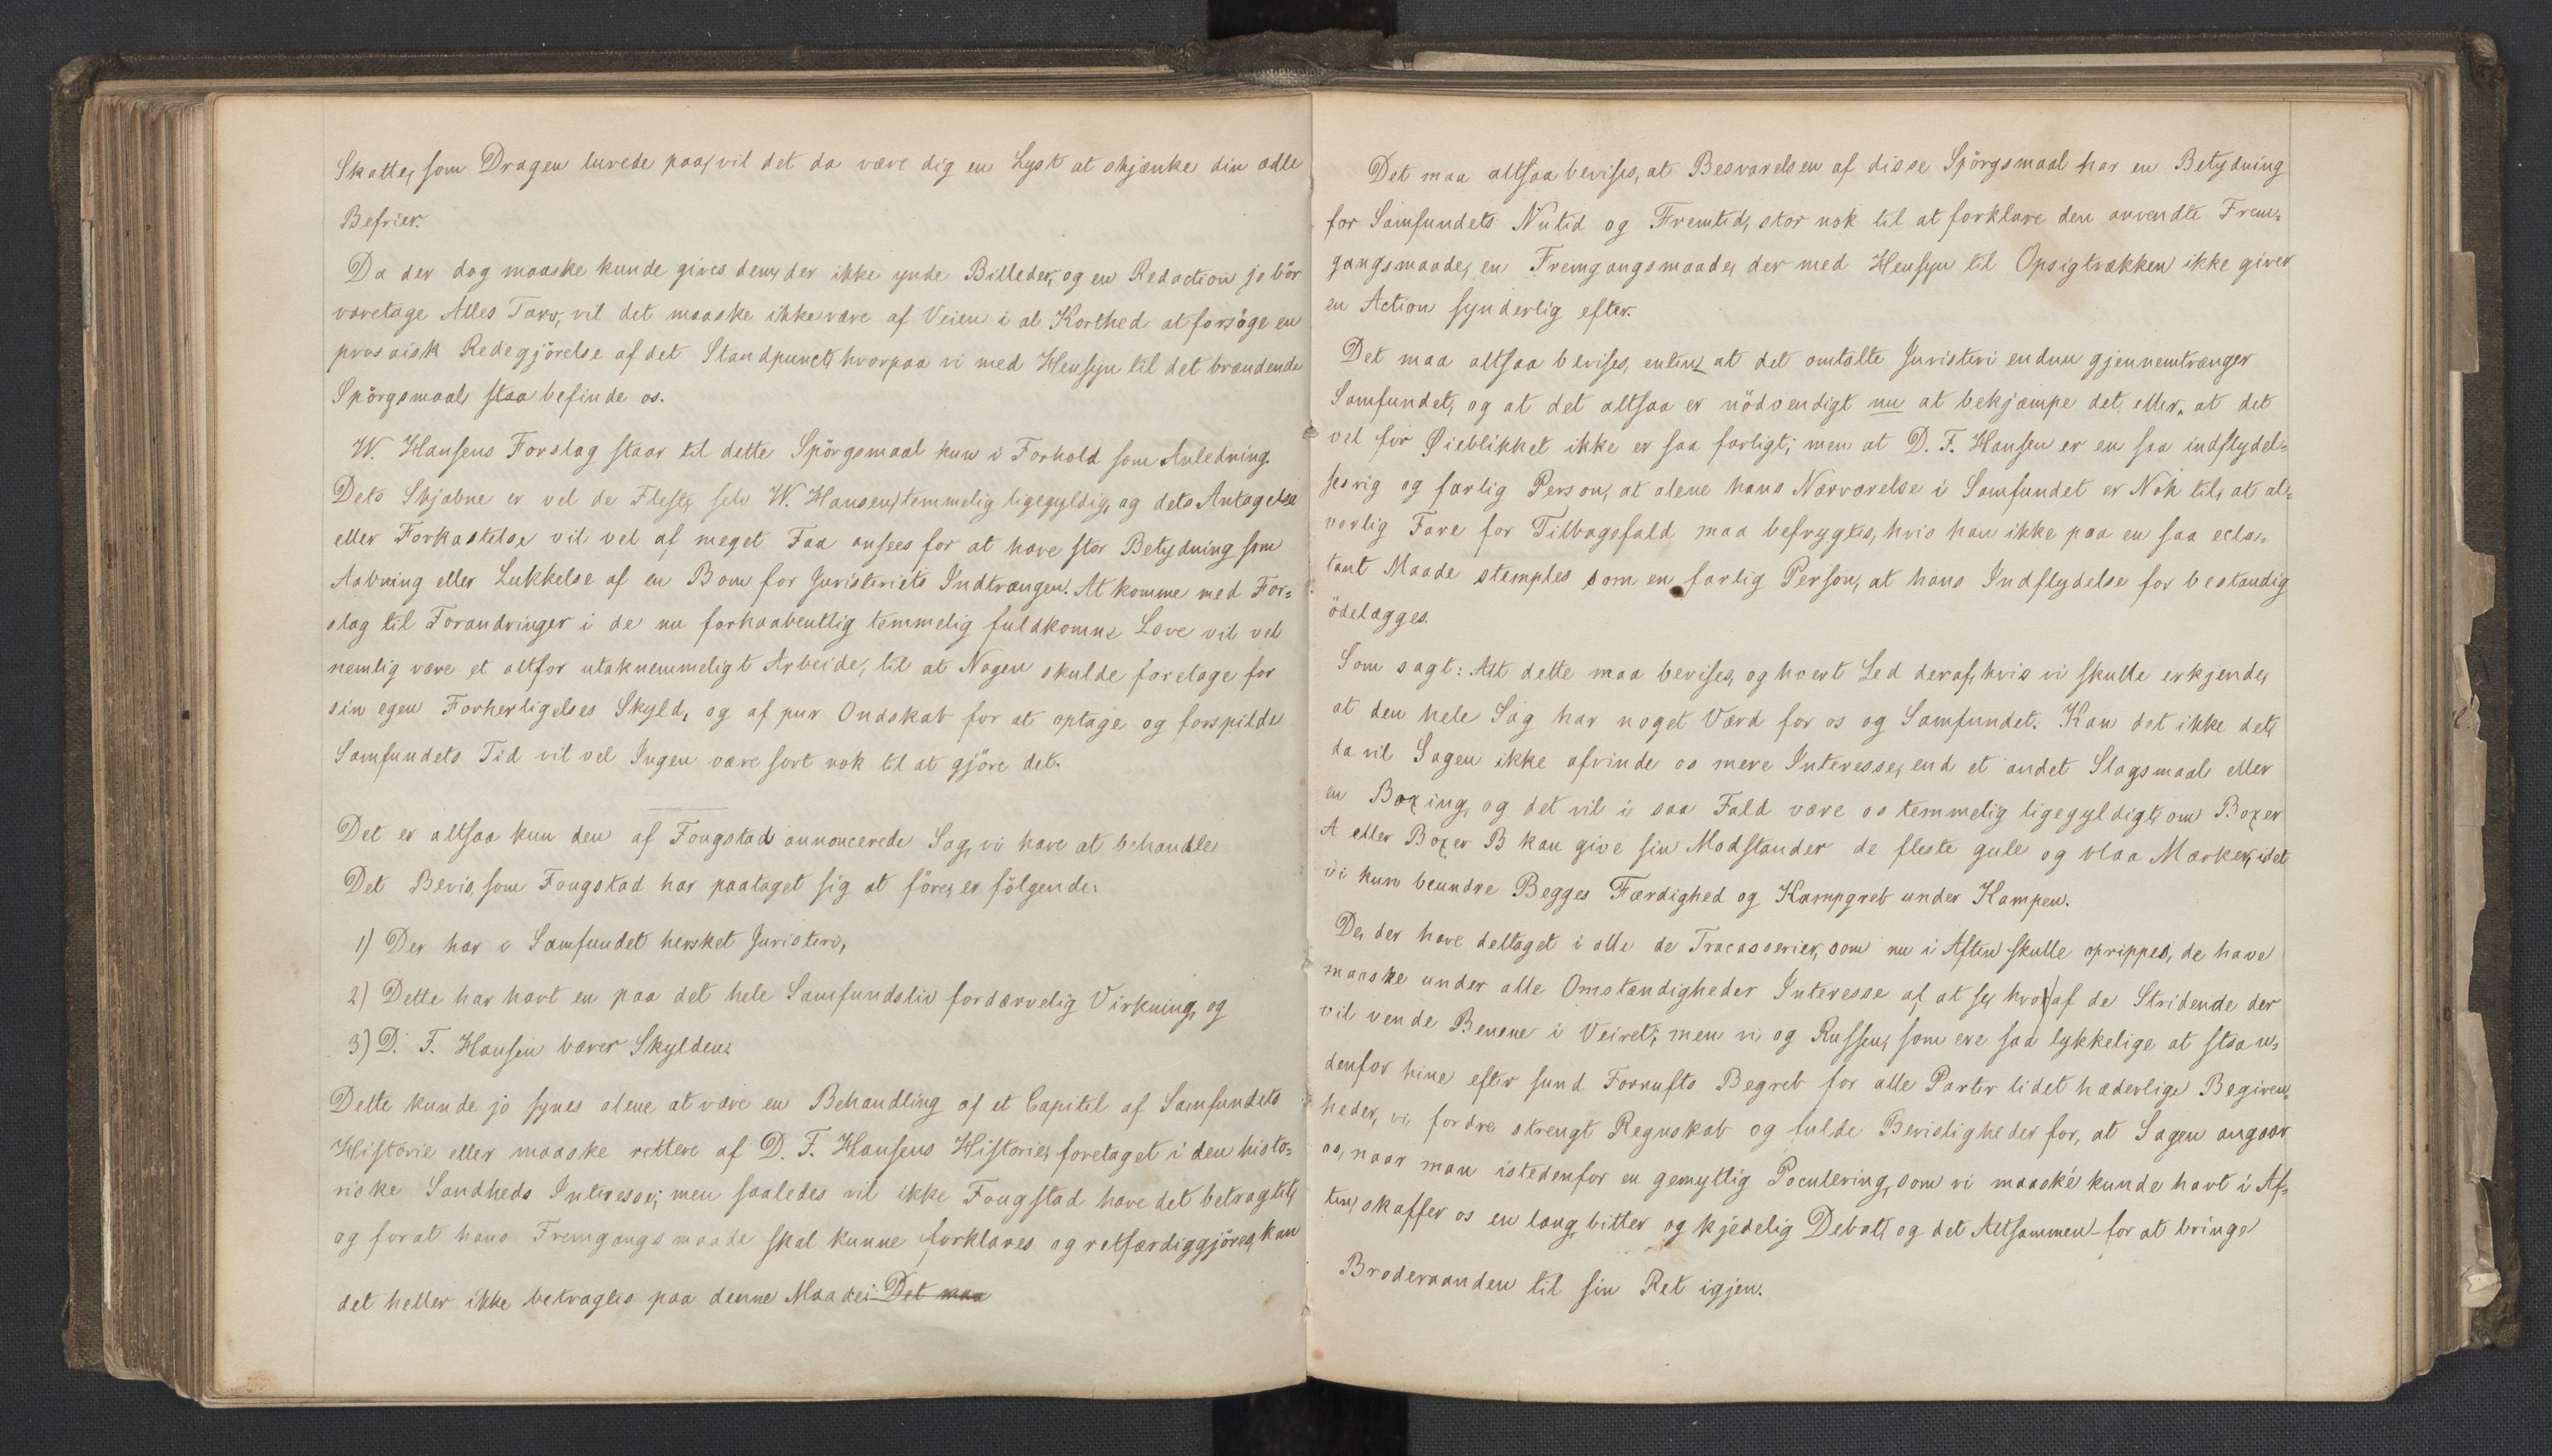 Skatte, som Dragen lurede paa, vil det da være dig en Lyst at skjænke din ædle
Befrier.
Da der dog maaske kunde gives dem, der ikke ynde Billeder, og en Redaction jo bör
varetage Alles Tarv, vil det maaske ikke være af Veien i al Korthed at forsöge en
prosaisk Redegjörelse af det Standpunct, hvorpaa vi med Hensyn til det brændende
Spörgsmaal staa befinde os.
W. Hansens Forslag staar til dette Spörgsmaal kun i Forhold som Anledning.
Dets Skjæbne er vel de Fleste, selv W. Hansen, temmelig ligegyldig, og dets Antagelse
eller Forkastelse vil vel af meget Faa ansees for at have stor Betydning som
Aabning eller Lukkelse af en Bom for Juristeriets Indtrængen. At komme med For-
slag til Forandringer i de nu forhaabentlig temmelig fuldkomne Love vil vel
nemlig være et altfor utaknemmeligt Arbeide, til at Nogen skulde foretage for
sin egen Forherligelses Skyld, og af pur Ondskab for at optage og forspilde
Samfundets Tid vil vel Ingen være sort nok til at gjöre det.
Det er altsaa kun den af Fougstad annoncerede Sag, vi have at behandle.
Det Bevis, som Fougstad har paataget sig at före, er fölgende:
1) Der har i Samfundet hersket Juristeri,
2) Dette har havt en paa det hele Samfundsliv fordærvelig Virkning, og
3) D. F. Hansen bærer Skylden.
Dette kunde jo synes alene at være en Behandling af et Capitel af Samfundets
Historie eller maaske rettere af D. F. Hansens Historie, foretaget i den histo-
riske Sandheds Interesse; men saaledes vil ikke Fougstad have det betragtet,
og forat hans Fremgangsmaade skal kunne forklares og retfærdiggjöres, kan
det heller ikke betragtes paa denne Maade: Det maa
Det maa altsaa bevises, at Besvarelsen af disse Spörgsmaal har en Betydning
for Samfundets Nutid og Fremtid, stor nok til at forklare den anvendte Frem-
gangsmaade, en Fremgangsmaade, der med Hensyn til Opsigtvækken ikke giver
en Action synderlig efter.
Det maa altsaa bevises, enten, at det omtalte Juristeri endnu gjennemtrænger
Samfundet, og at det altsaa er nödvendigt nu at bekjæmpe det, eller, at det
vel for Øieblikket ikke er saa farligt; men at D. F. Hansen er en saa indflydel-
sesrig og farlig Person, at alene hans Nærværelse i Samfundet er Nok til, at al-
vorlig Fare for Tilbagefald maa befrygtes, hvis han ikke paa en saa ecla-
tant Maade stemples som en farlig Person, at hans Indflydelse for bestandig
ödelægges.
Som sagt: Alt dette maa bevises, og hvert Led deraf, hvis vi skulle erkjende,
at den hele Sag har noget Værd for os og Samfundet. Kan det ikke det,
da vil Sagen ikke afvinde os mere Interesse, end et andet Slagsmaal eller
en Boxing, og det vil i saa Fald være os temmelig ligegyldigt, om Boxer
A eller Boxer B kan give sin Modstander de fleste gule og blaa Mærker, idet
vi kun beundre Begges Færdighed og Kampgreb under Kampen.
De, der have deltaget i alle de Tracasserier, som nu i Aften skulle oprippes, de have
maaske under alle Omstændigheder Interesse af at se, hvo af de Stridende der
vil vende Benene i Veiret; men vi og Russen, som ere saa lykkelige at staa u-
denfor hine efter sund Fornufts Begreb for alle Parter lidet hæderlige Begiven-
heder, vi fordre strengt Regnskab og fulde Bevisligheder for, at Sagen angaar
os, naar man istedenfor en gemytlig Poculering, som vi maaske kunde havt i Af-
ten, skaffer os en lang, bitter og kjedelig Debat, og det Altsammen for at bringe
Broderaanden til sin Ret igjen.